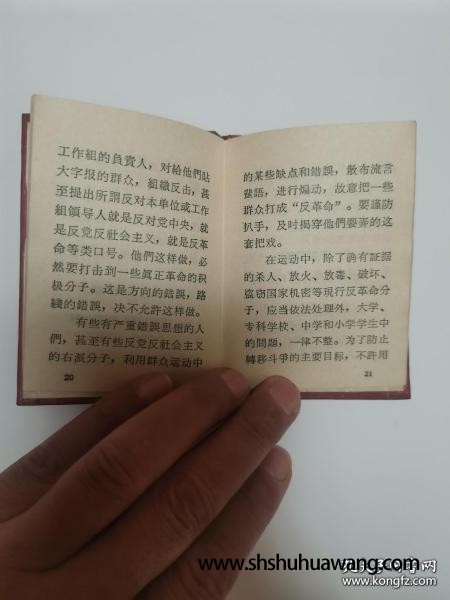 工作組的負責人，对給他們貼
大字报的群众，組織反击，甚
至提出所謂反对本单位或工作
組領导人就是反对党中央，就
是反党反社会主义，就是反革
命等类口号。他們这样做，必
然要打击到一些真正革命的积
极分子。这是方向的錯誤，路
綫的錯誤，决不允許这样做。
有些有严重錯誤思想的人
們，甚至有些反党反社会主义
的右派分子，利用群众运动中
20
的某些缺点和錯誤，散布流言
蜚語，进行煽动，故意把一些
群众打成“反革命”。要謹防
扒手，及时揭穿他們耍弄的这
套把戏。
在运动中，除了确有証据
的杀人、放火、放毒、破坏、
盜窃国家机密等現行反革命分
子，应当依法处理外，大学、
专科学校、中学和小学学生中
的問題，一律不整。为了防止
轉移斗爭的主要目标，不許用
21
www.shshuhuawang.com
www.kongfz.com